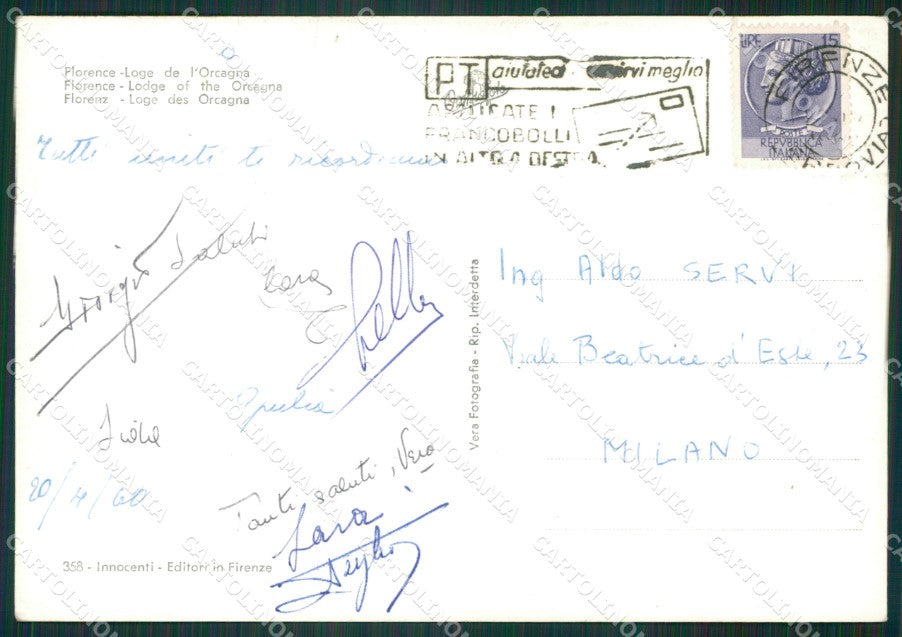 Florence - Loge de l'Orcagna
Florence - Lodge of the Orcagna
Florenz - Loge des Orcagna
Tutti uniti te ricordiamo
Giorgio Saluti
Giulia
20/4/60
Tanti saluti, Vera
Sara
358 - Innocenti - Editori in Firenze
Vera Fotografia - Rip. Interdetta
PT aiutateci servirvi meglio
APPLICATE I
FRANCOBOLLI
IN ALTO A DESTRA
LIRE 15
POSTE
REPVBBLICA
ITALIANA
FIRENZE
FERROVIA
Ing Aldo SERVI
Viale Beatrice d'Este, 23
MILANO
CARTOLINOMANIA